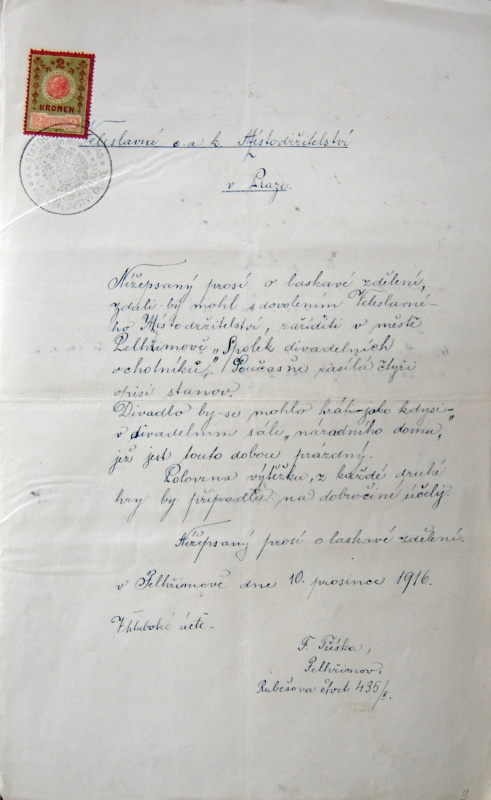 2
KRONEN
Veleslavné c. a k. Místodržitelství
v Praze.
Nížepsaný prosí o laskavé zdělení,
zdali-by mohl s dovolením Veleslavné-
ho Místodržitelství, zaříditi v městě
Pelhřimově „Spolek divadelních
ochotníků". Současně zasílá čtyři
opisi stanov.
Divadlo by-se mohlo hráti-jako kdysi-
v divadelním sále „národního domu,"
již jest touto dobou prazdný.
Polovina výtěžku, z každé druhé
hry by připadla na dobročiné účely.
Nížepsaný prosí o laskavé zdělení.
v Pelhřimově dne 10. prosince 1916.
V hluboké úctě-
F. Tůška,
Pelhřimov,
Rubešova čtvrt 435/I.
9